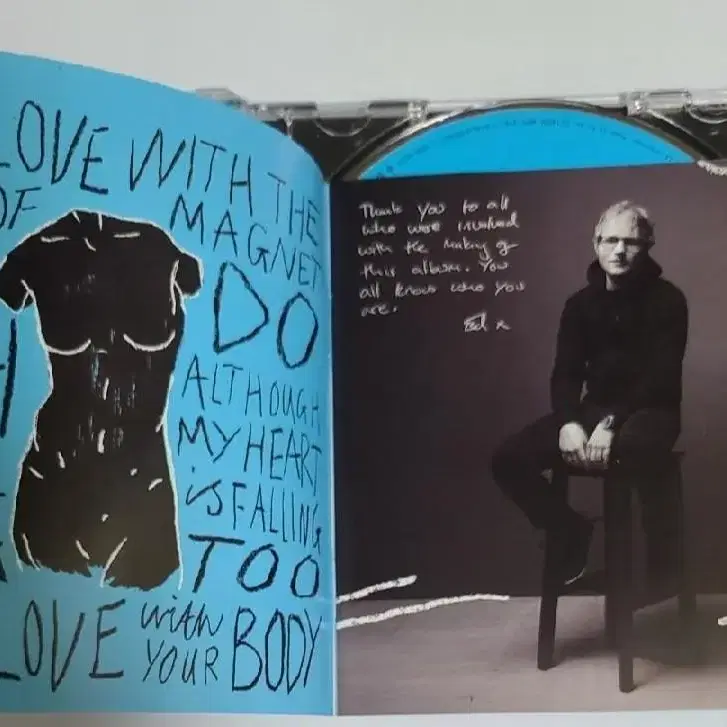 LOVE WITH THE
OF MAGNET
DO
ALTHOUGH
MY HEART
is FALLING
TOO
LOVE with YOUR BODY
Thank you to all
who were involved
with the making of
this album. You
all know who you
are.
Ed x